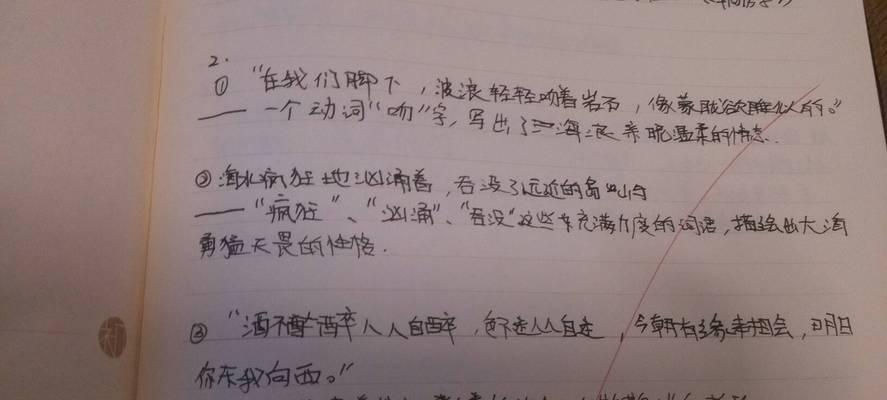 2.
① “在我们脚下，波浪轻轻吻着岩石，像蒙眬欲睡似的。”
—— 一个动词“吻”字，写出了海浪亲昵温柔的情态.
② 海水疯狂地汹涌着，吞没了远近的岛屿
—— “疯狂”、“汹涌”、“吞没”这些充满力度的词语，描绘出大海
勇猛无畏的性格.
③ “酒不醉人人自醉，色不迷人人自迷，今朝有缘来相会，明日
你东我向西。”